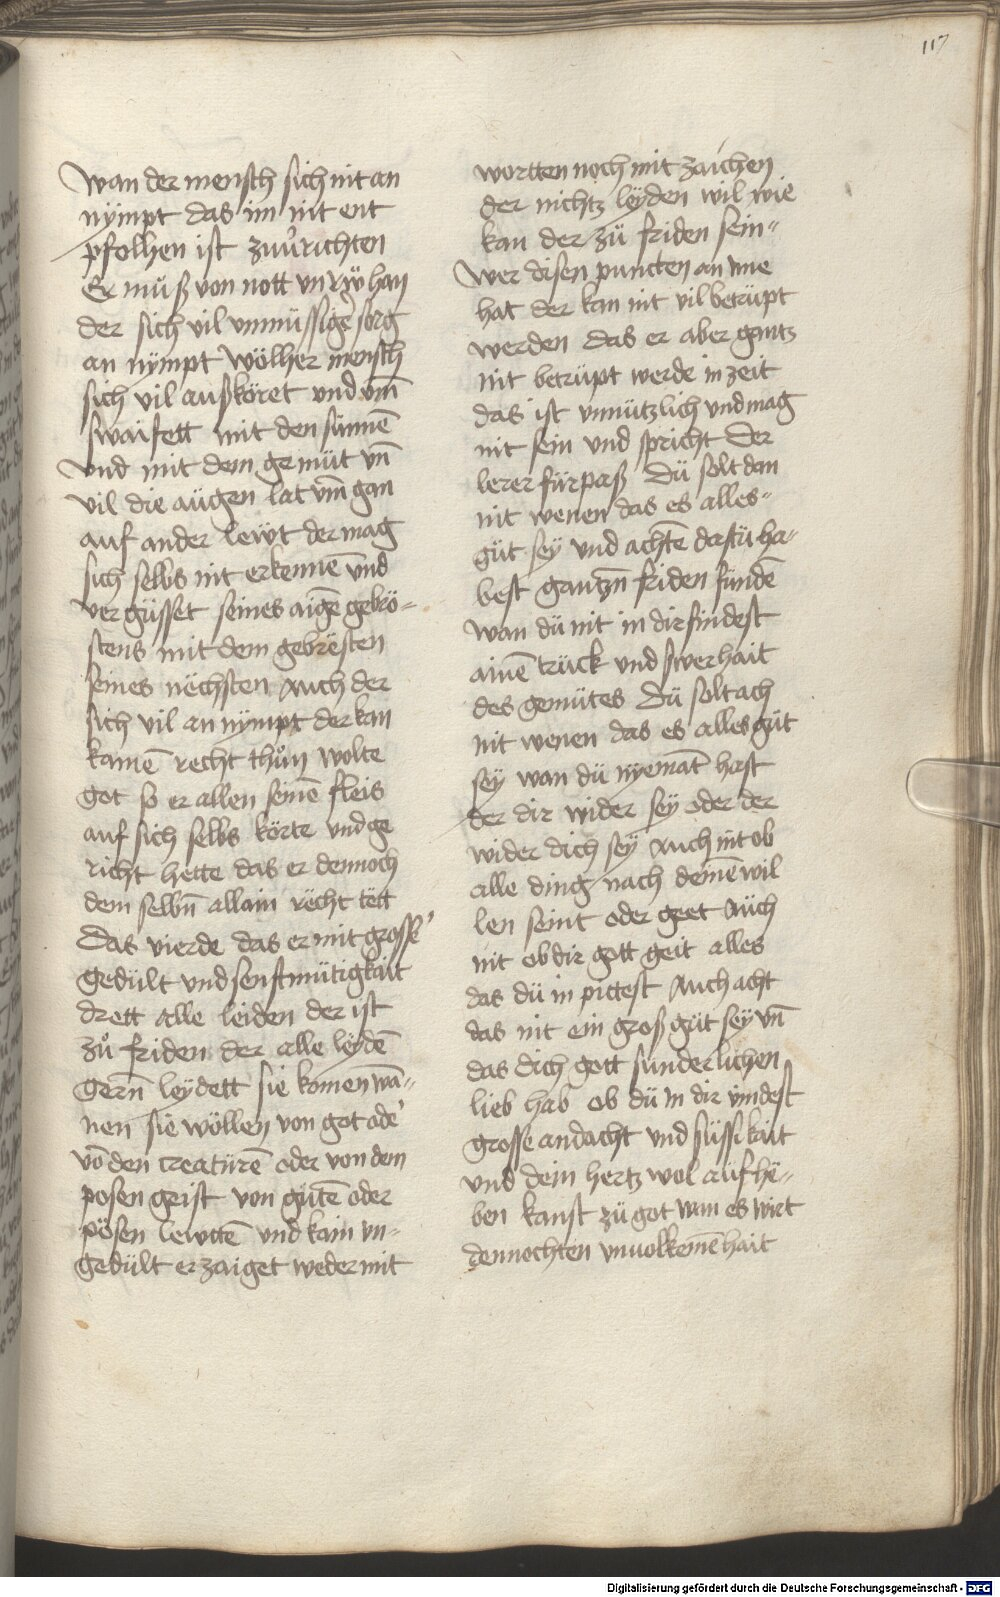 117
wan der mensch sich nit an
nympt das im nit ent
pfolhen ist zuůrichten
Er můß von nott vnrẅ han
der sich vil vnmüssiger sorg
an nympt wölher mensch
sich vil außköret vnd vm̄
swaifett mit den sünnē
vnd mit dem gemüt vn̄
vil die aügen lat vm̄ gan
auf ander lewt der mag
sich selbs nit erkennē vnd
vergüsset seines aigē gebrö-
stens mit dem gebrësten
seines nëchsten Auch der
sich vil an nympt der kan
kainē recht thůn wolte
got so er allen seinē fleis
auf sich selbs körte vnd ge
richt hette das er dennoch
dem selbn̄ allain rëcht tett
Das vierde das er mit grosser
gedült vnd senftmütigkait
drett alle leiden der ist
zů friden der alle leydē
gern̄ leydett sie komen wā-
nen sie wöllen von got oder
vō den creatürē oder von dem
posen geist von gütē oder
pösen lewttē vnd kain vn-
gedült erzaiget weder mit
wortten noch mit zaichen
der nichtz leyden wil wie
kan der zü friden sein-
Wer disen puncten an ime
hat der kan nit vil betrüpt
werden das er aber gantz
nit betrüpt werde in zeit
das ist vnnützlich vnd mag
nit sein vnd spricht der
lerer fürpaß Dü solt dan
nit wenen das es alles-
güt sey vnd achtē dastü ha-
best gantzn̄ friden fündē
wan dü nit in dir findest
ainē trück vnd swerhait
des gemütes Dü solt ach
nit wenen das es alles güt
sey wan dü nyemāt hast
der dir wider sey oder der
wider dich sey Auch nit ob
alle ding nach deinē wil
len seint oder geet Aüch
nit ob dir gott geit alles
das dü in pittest Auch acht
das nit ein groß güt sey vn̄
das dich gott sunderlichen
lieb hab ob dü in dir vindest
grosse andacht vnd süssikait
vnd dein hertz wol aüf hë-
ben kanst zü got wan es wirt
dennochten vnuolkemēhait
Digitalisierung gefördert durch die Deutsche Forschungsgemeinschaft - DFG